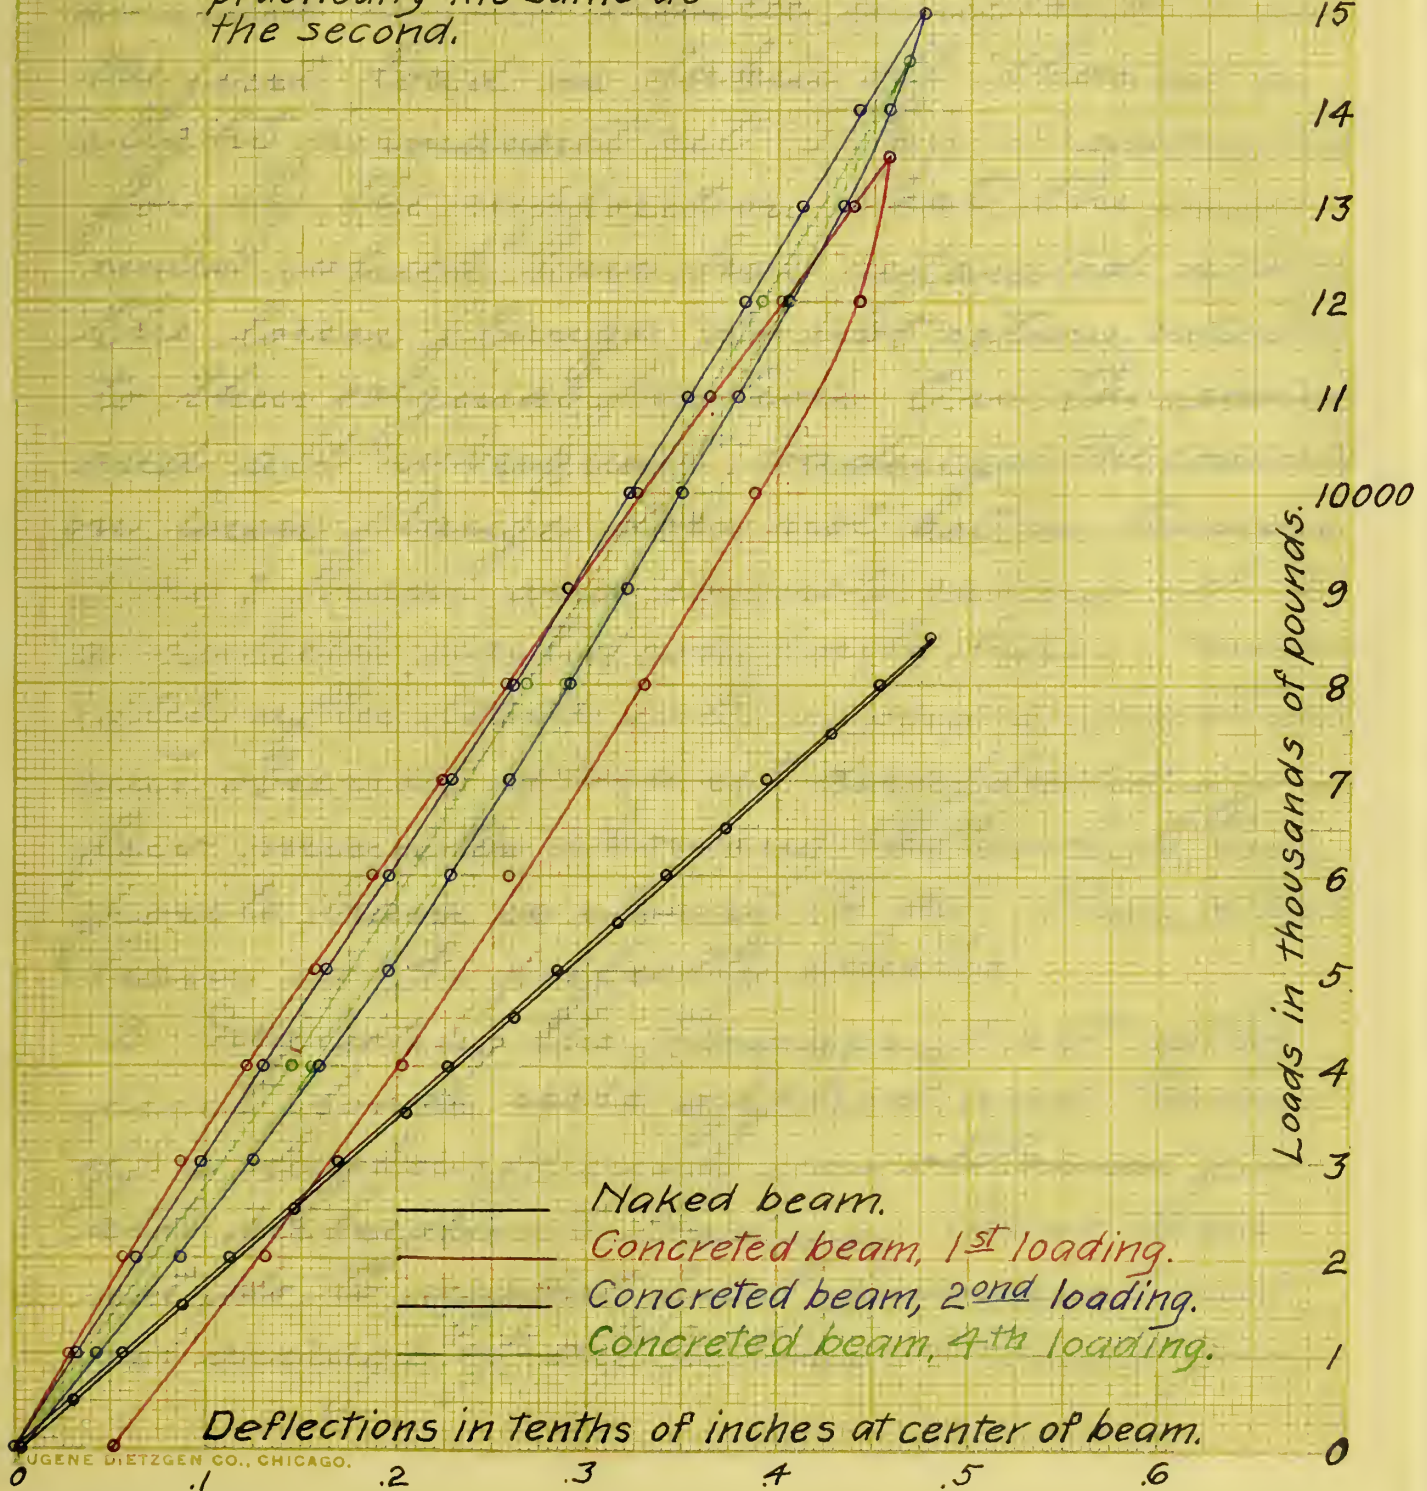 practically the same as
the second.
15
14
13
12
11
10000
9
8
7
6
5
4
3
2
1
0
Loads in thousands of pounds.
Naked beam.
Concreted beam, 1st loading.
Concreted beam, 2ond loading.
Concreted beam, 4th loading.
Deflections in tenths of inches at center of beam.
EUGENE DIETZGEN CO., CHICAGO.
0 .1 .2 .3 .4 .5 .6